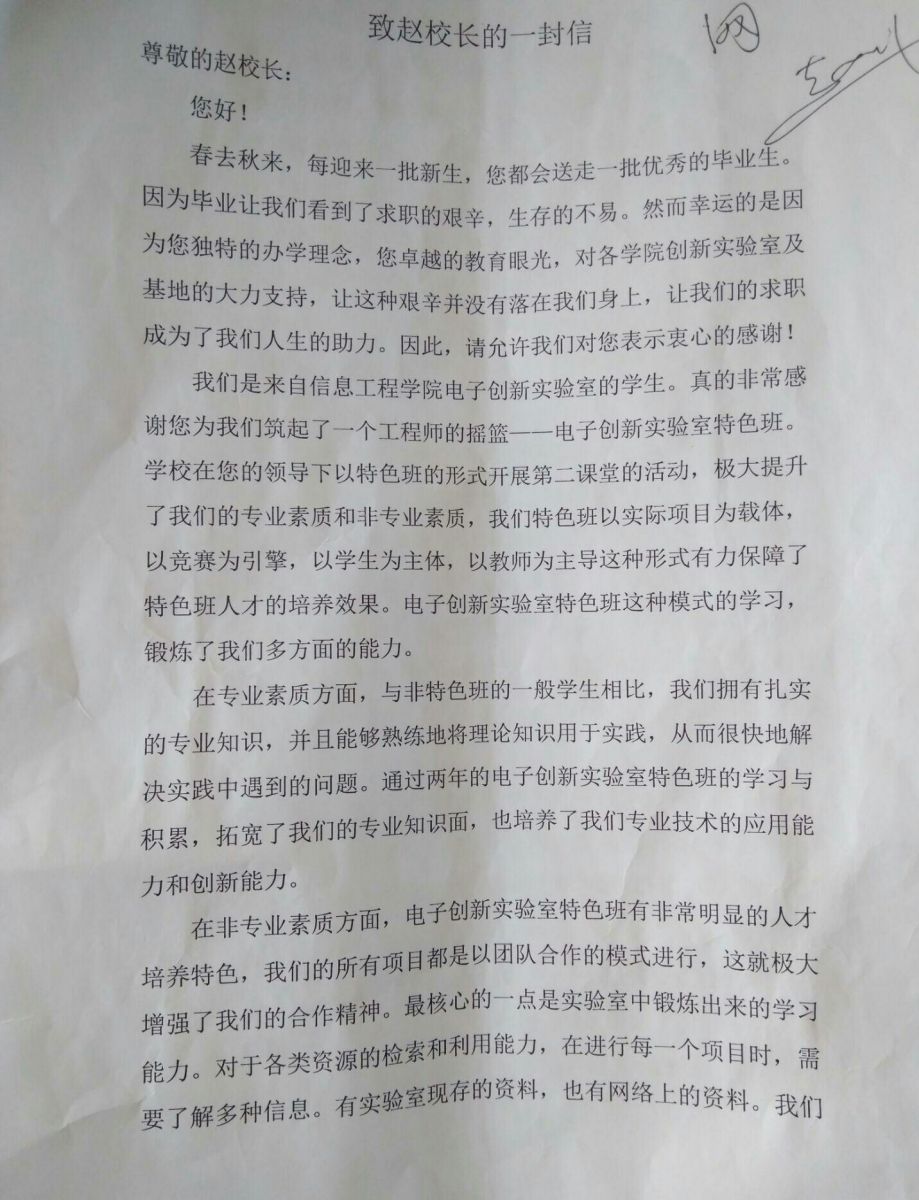 致赵校长的一封信
网
尊敬的赵校长：
您好！
春去秋来，每迎来一批新生，您都会送走一批优秀的毕业生。
因为毕业让我们看到了求职的艰辛，生存的不易。然而幸运的是因
为您独特的办学理念，您卓越的教育眼光，对各学院创新实验室及
基地的大力支持，让这种艰辛并没有落在我们身上，让我们的求职
成为了我们人生的助力。因此，请允许我们对您表示衷心的感谢！
我们是来自信息工程学院电子创新实验室的学生。真的非常感
谢您为我们筑起了一个工程师的摇篮——电子创新实验室特色班。
学校在您的领导下以特色班的形式开展第二课堂的活动，极大提升
了我们的专业素质和非专业素质，我们特色班以实际项目为载体，
以竞赛为引擎，以学生为主体，以教师为主导这种形式有力保障了
特色班人才的培养效果。电子创新实验室特色班这种模式的学习，
锻炼了我们多方面的能力。
在专业素质方面，与非特色班的一般学生相比，我们拥有扎实
的专业知识，并且能够熟练地将理论知识用于实践，从而很快地解
决实践中遇到的问题。通过两年的电子创新实验室特色班的学习与
积累，拓宽了我们的专业知识面，也培养了我们专业技术的应用能
力和创新能力。
在非专业素质方面，电子创新实验室特色班有非常明显的人才
培养特色，我们的所有项目都是以团队合作的模式进行，这就极大
增强了我们的合作精神。最核心的一点是实验室中锻炼出来的学习
能力。对于各类资源的检索和利用能力，在进行每一个项目时，需
要了解多种信息。有实验室现存的资料，也有网络上的资料。我们